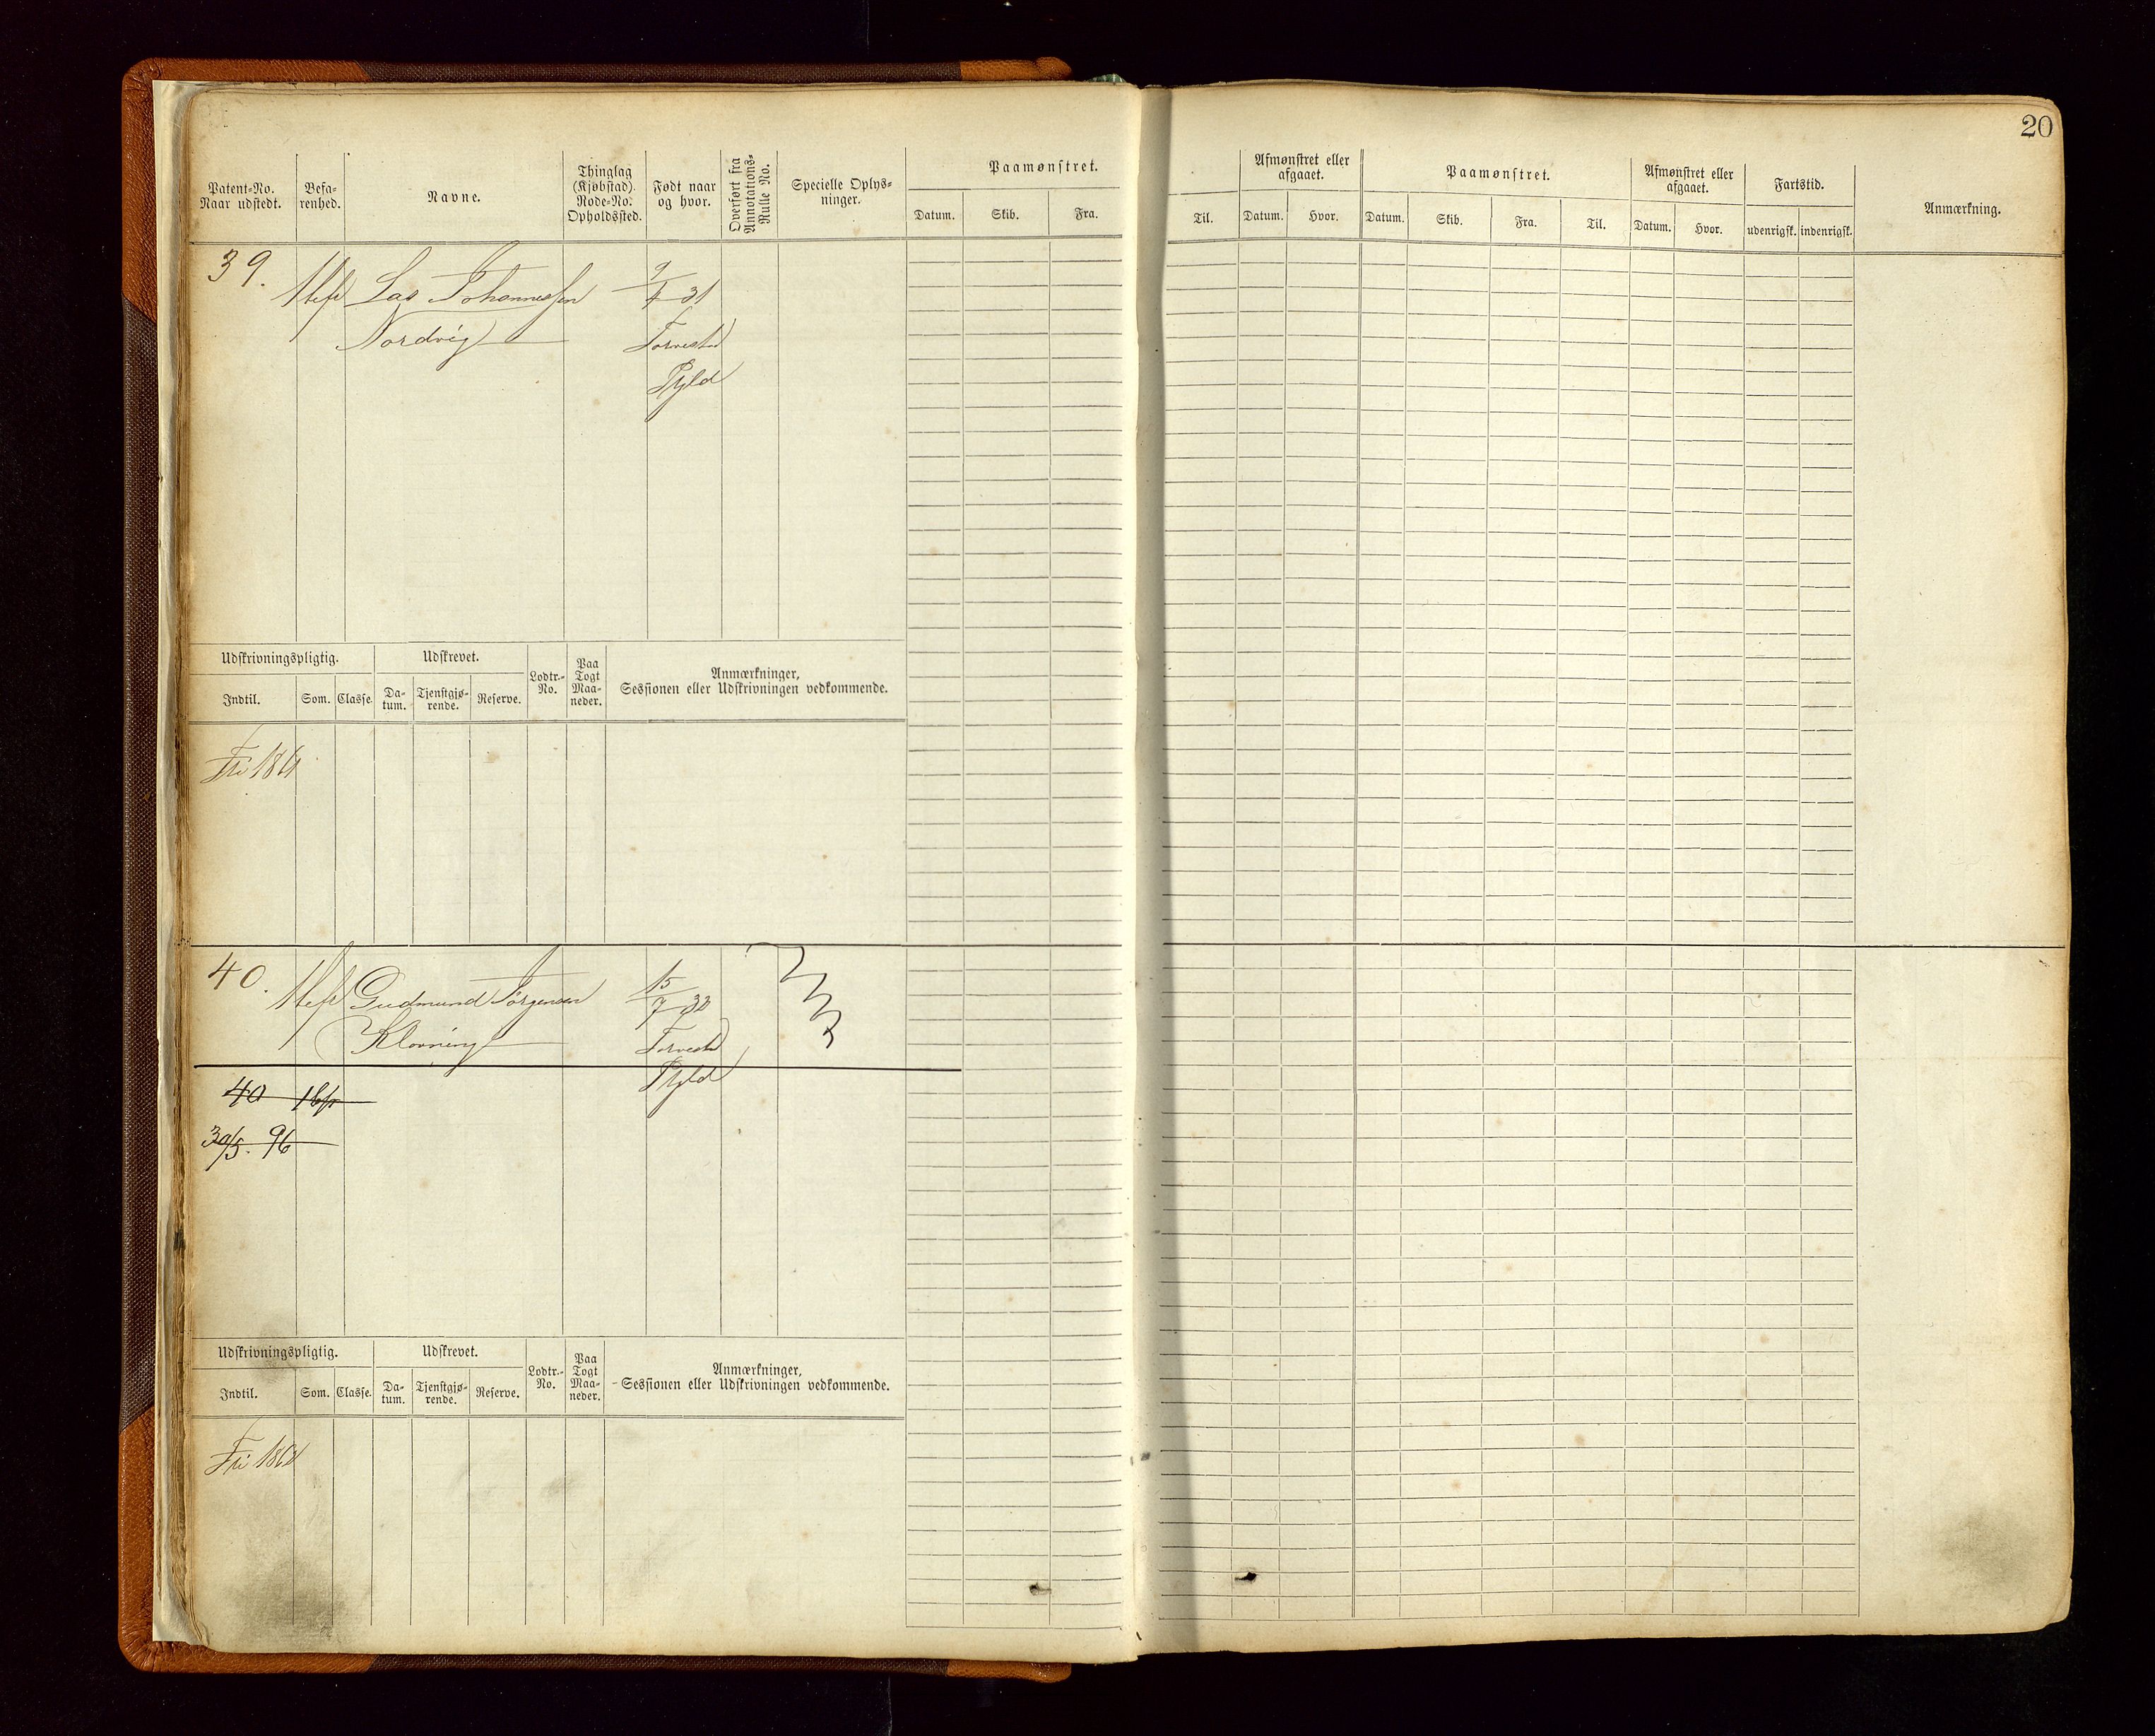 20
Patent-No. Naar udstedt.
Befa-renhed.
Navne.
Thinglag (Kjøbstad). Rode-No. Opholdssted.
Født naar og hvor.
Overført fra Annotations-Rulle No.
Specielle Oplys-ninger.
Paamønstret.
Datum. Skib. Fra.
Til.
Afmønstret eller afgaaet.
Datum. Hvor.
Paamønstret.
Datum. Skib. Fra. Til.
Afmønstret eller afgaaet.
Datum. Hvor.
Fartstid.
udenrigsk. indenrigsk.
Anmærkning.
39. Lars Johannessen 9/4 31
Nordvig Torvestad
Udskrivningspligtig. Udskrevet. Lodtr.-No. Paa Togt Maa-neder. Anmærkninger,
Sessionen eller Udskrivningen vedkommende.
Indtil. Som. Classe. Da-tum. Tjenstgjø-rende. Reserve.
Fri 1861
40. Gudmund Jørgensen 15/7 32
Klovning Torvestad
40
30/5. 96
Udskrivningspligtig. Udskrevet. Lodtr.-No. Paa Togt Maa-neder. Anmærkninger,
Sessionen eller Udskrivningen vedkommende.
Indtil. Som. Classe. Da-tum. Tjenstgjø-rende. Reserve.
Fri 1862